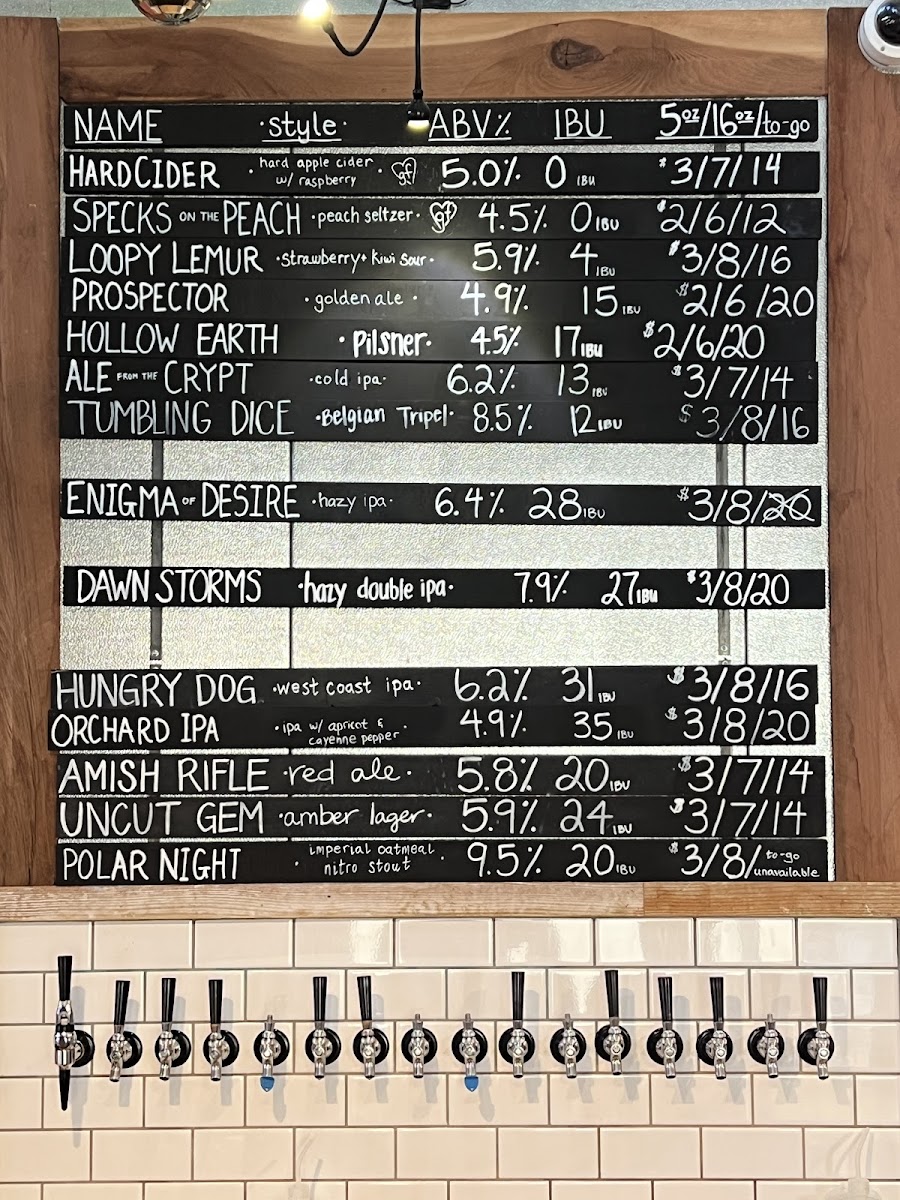 NAME ·style· ABV% IBU 5oz/16oz/to-go
HARD CIDER · hard apple cider w/ raspberry · gf 5.0% 0 IBU $3/7/14
SPECKS ON THE PEACH ·peach seltzer· gf 4.5% 0 IBU $2/6/12
LOOPY LEMUR ·strawberry + kiwi sour· 5.9% 4 IBU $3/8/16
PROSPECTOR · golden ale · 4.9% 15 IBU $2/6/20
HOLLOW EARTH · Pilsner· 4.5% 17 IBU $2/6/20
ALE FROM THE CRYPT ·cold ipa· 6.2% 13 IBU $3/7/14
TUMBLING DICE ·Belgian Tripel· 8.5% 12 IBU $3/8/16
ENIGMA OF DESIRE ·hazy ipa· 6.4% 28 IBU $3/8/20
DAWN STORMS ·hazy double ipa· 7.9% 27 IBU $3/8/20
HUNGRY DOG ·west coast ipa· 6.2% 31 IBU $3/8/16
ORCHARD IPA · ipa w/ apricot & cayenne pepper · 4.9% 35 IBU $3/8/20
AMISH RIFLE ·red ale· 5.8% 20 IBU $3/7/14
UNCUT GEM ·amber lager· 5.9% 24 IBU $3/7/14
POLAR NIGHT · imperial oatmeal nitro stout · 9.5% 20 IBU $3/8/to-go unavailable